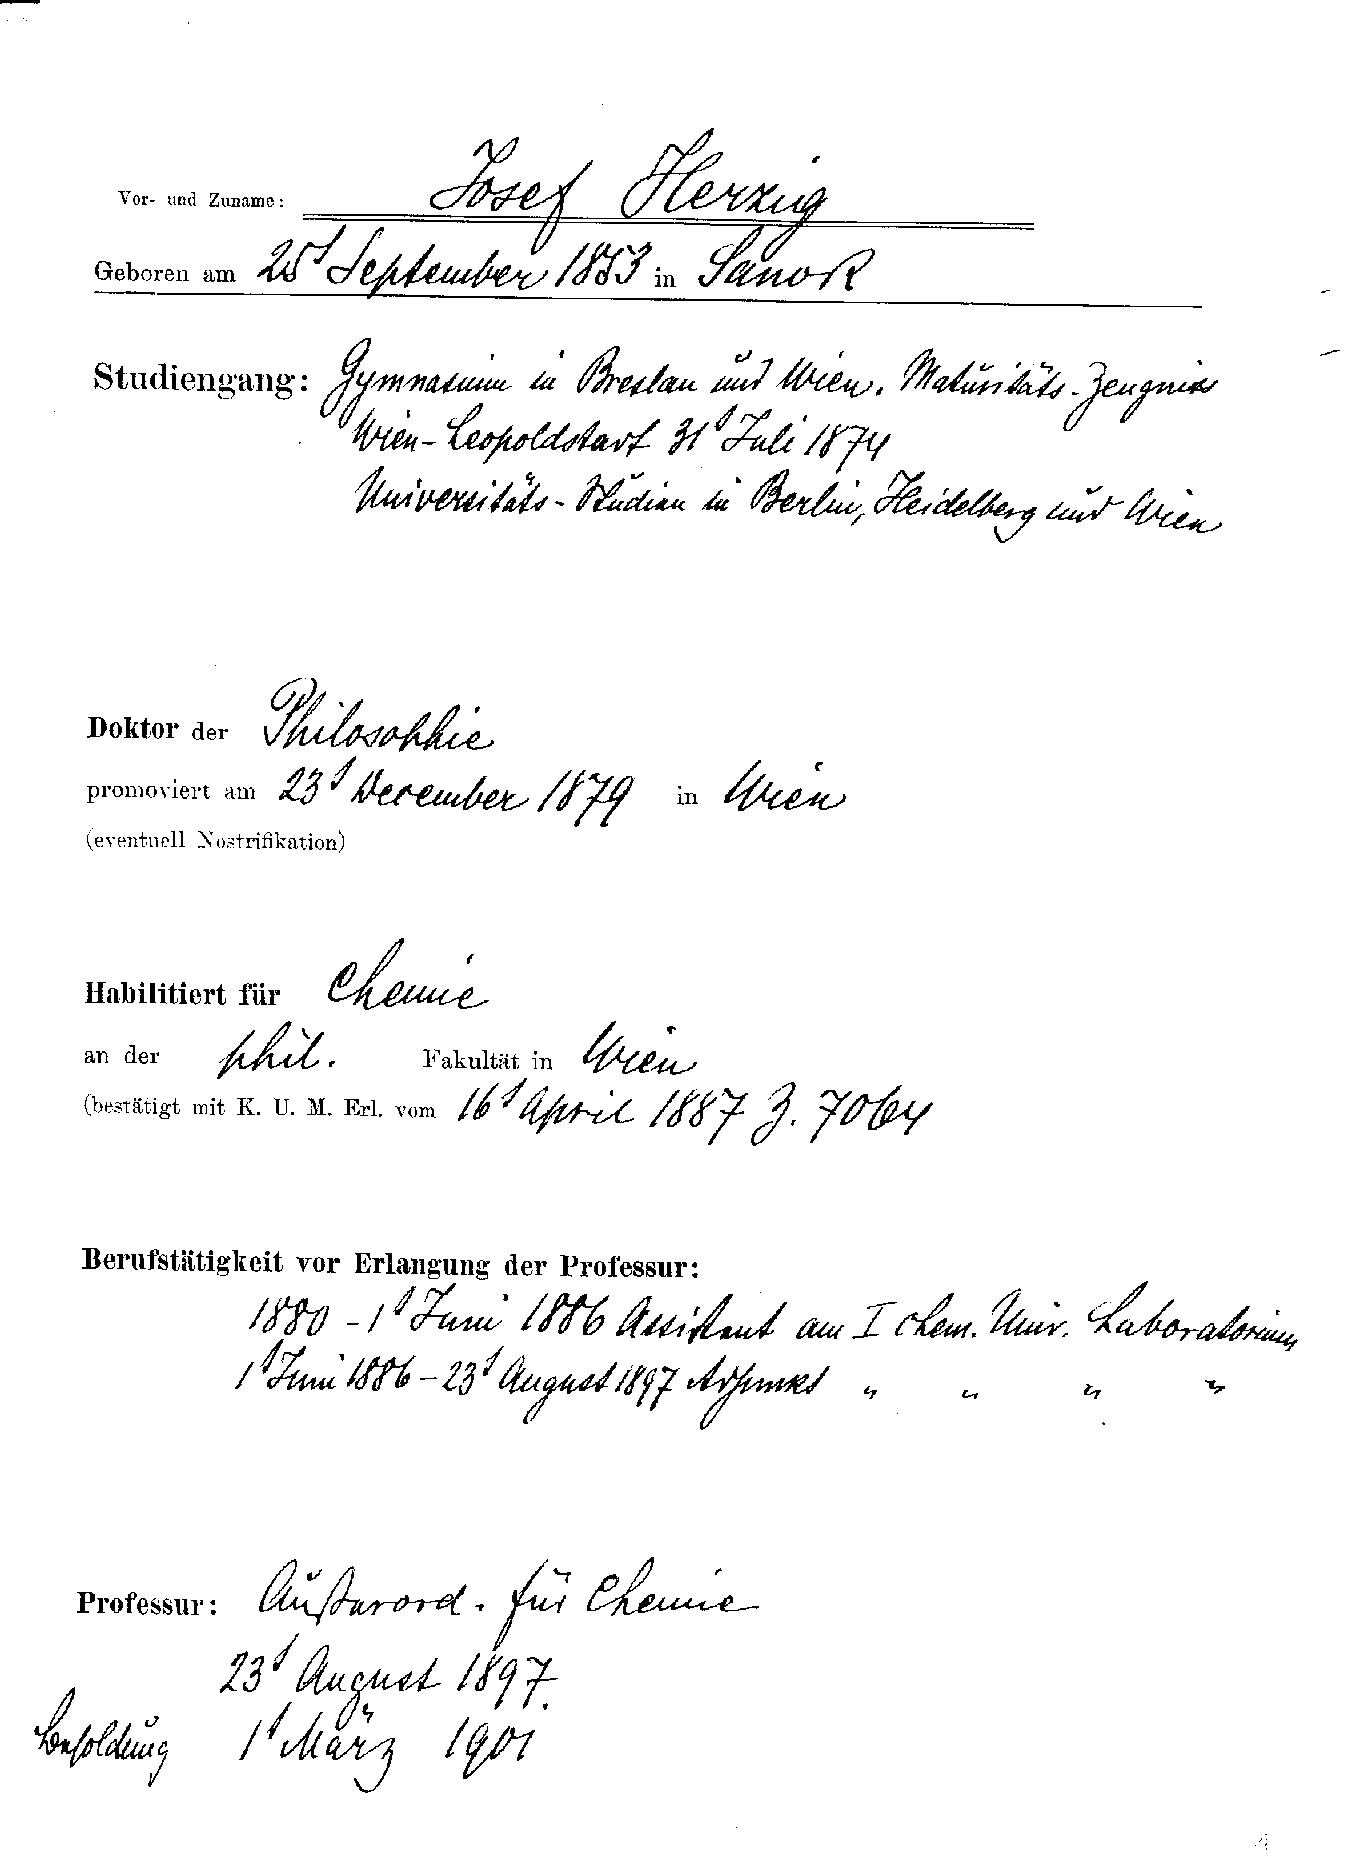 Vor- und Zuname: Josef Herzig
Geboren am 25t September 1853 in Sanok
Studiengang: Gymnasium in Breslau und Wien. Maturitäts-Zeugniss
Wien-Leopoldstadt 31t Juli 1874
Universitäts-Studien in Berlin, Heidelberg und Wien
Doktor der Philosophie
promoviert am 23t December 1879 in Wien
(eventuell Nostrifikation)
Habilitiert für Chemie
an der phil. Fakultät in Wien
(bestätigt mit K. U. M. Erl. vom 16t April 1887 Z. 7064
Berufstätigkeit vor Erlangung der Professur:
1880 - 1t Juni 1886 Assistent am I chem. Univ. Laboratorium
1t Juni 1886 - 23t August 1897 Adjunkt " " " "
Professur: Außerord. für Chemie
23t August 1897.
Besoldung 1t März 1901